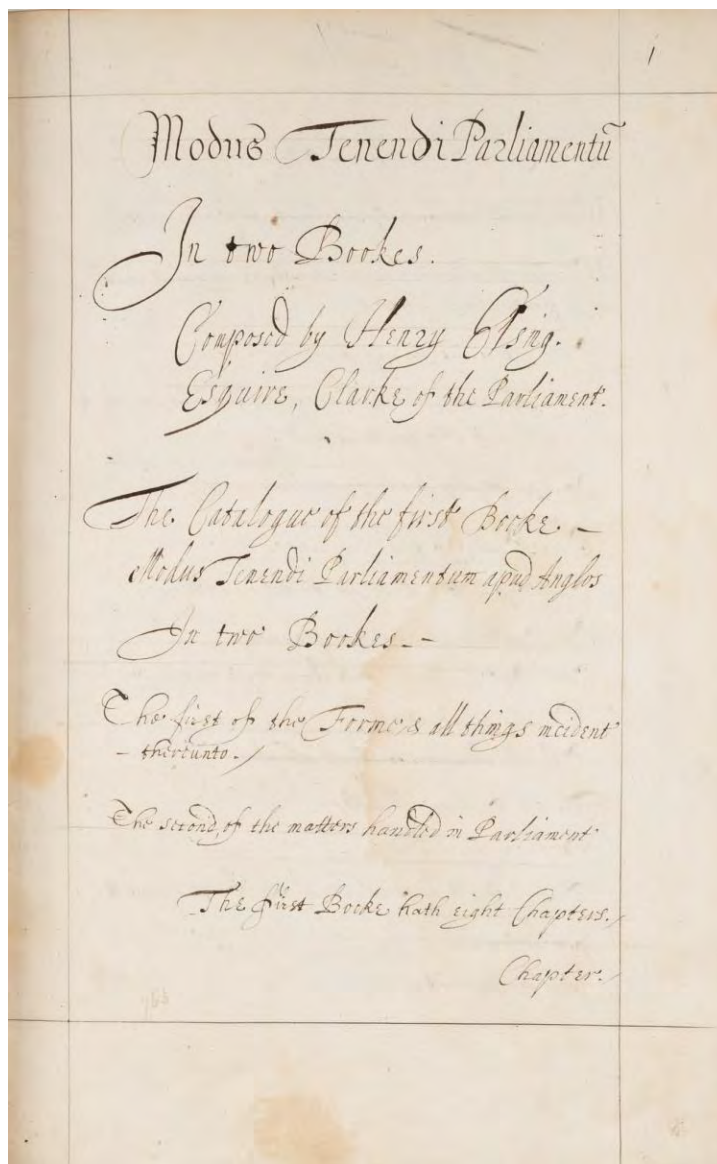 1
Modus Tenendi Parliamentū
In two Bookes.
Composed by Henry Elsing.
Esquire, Clarke of the Parliament.
The Catalogue of the first Booke. –
Modus Tenendi Parliamentum apud Anglos
In two Bookes. –
The first of the Forme & all things incident
– thereunto. /
The second, of the matters handled in Parliament
The first Booke hath eight Chapters. /
Chapter. /